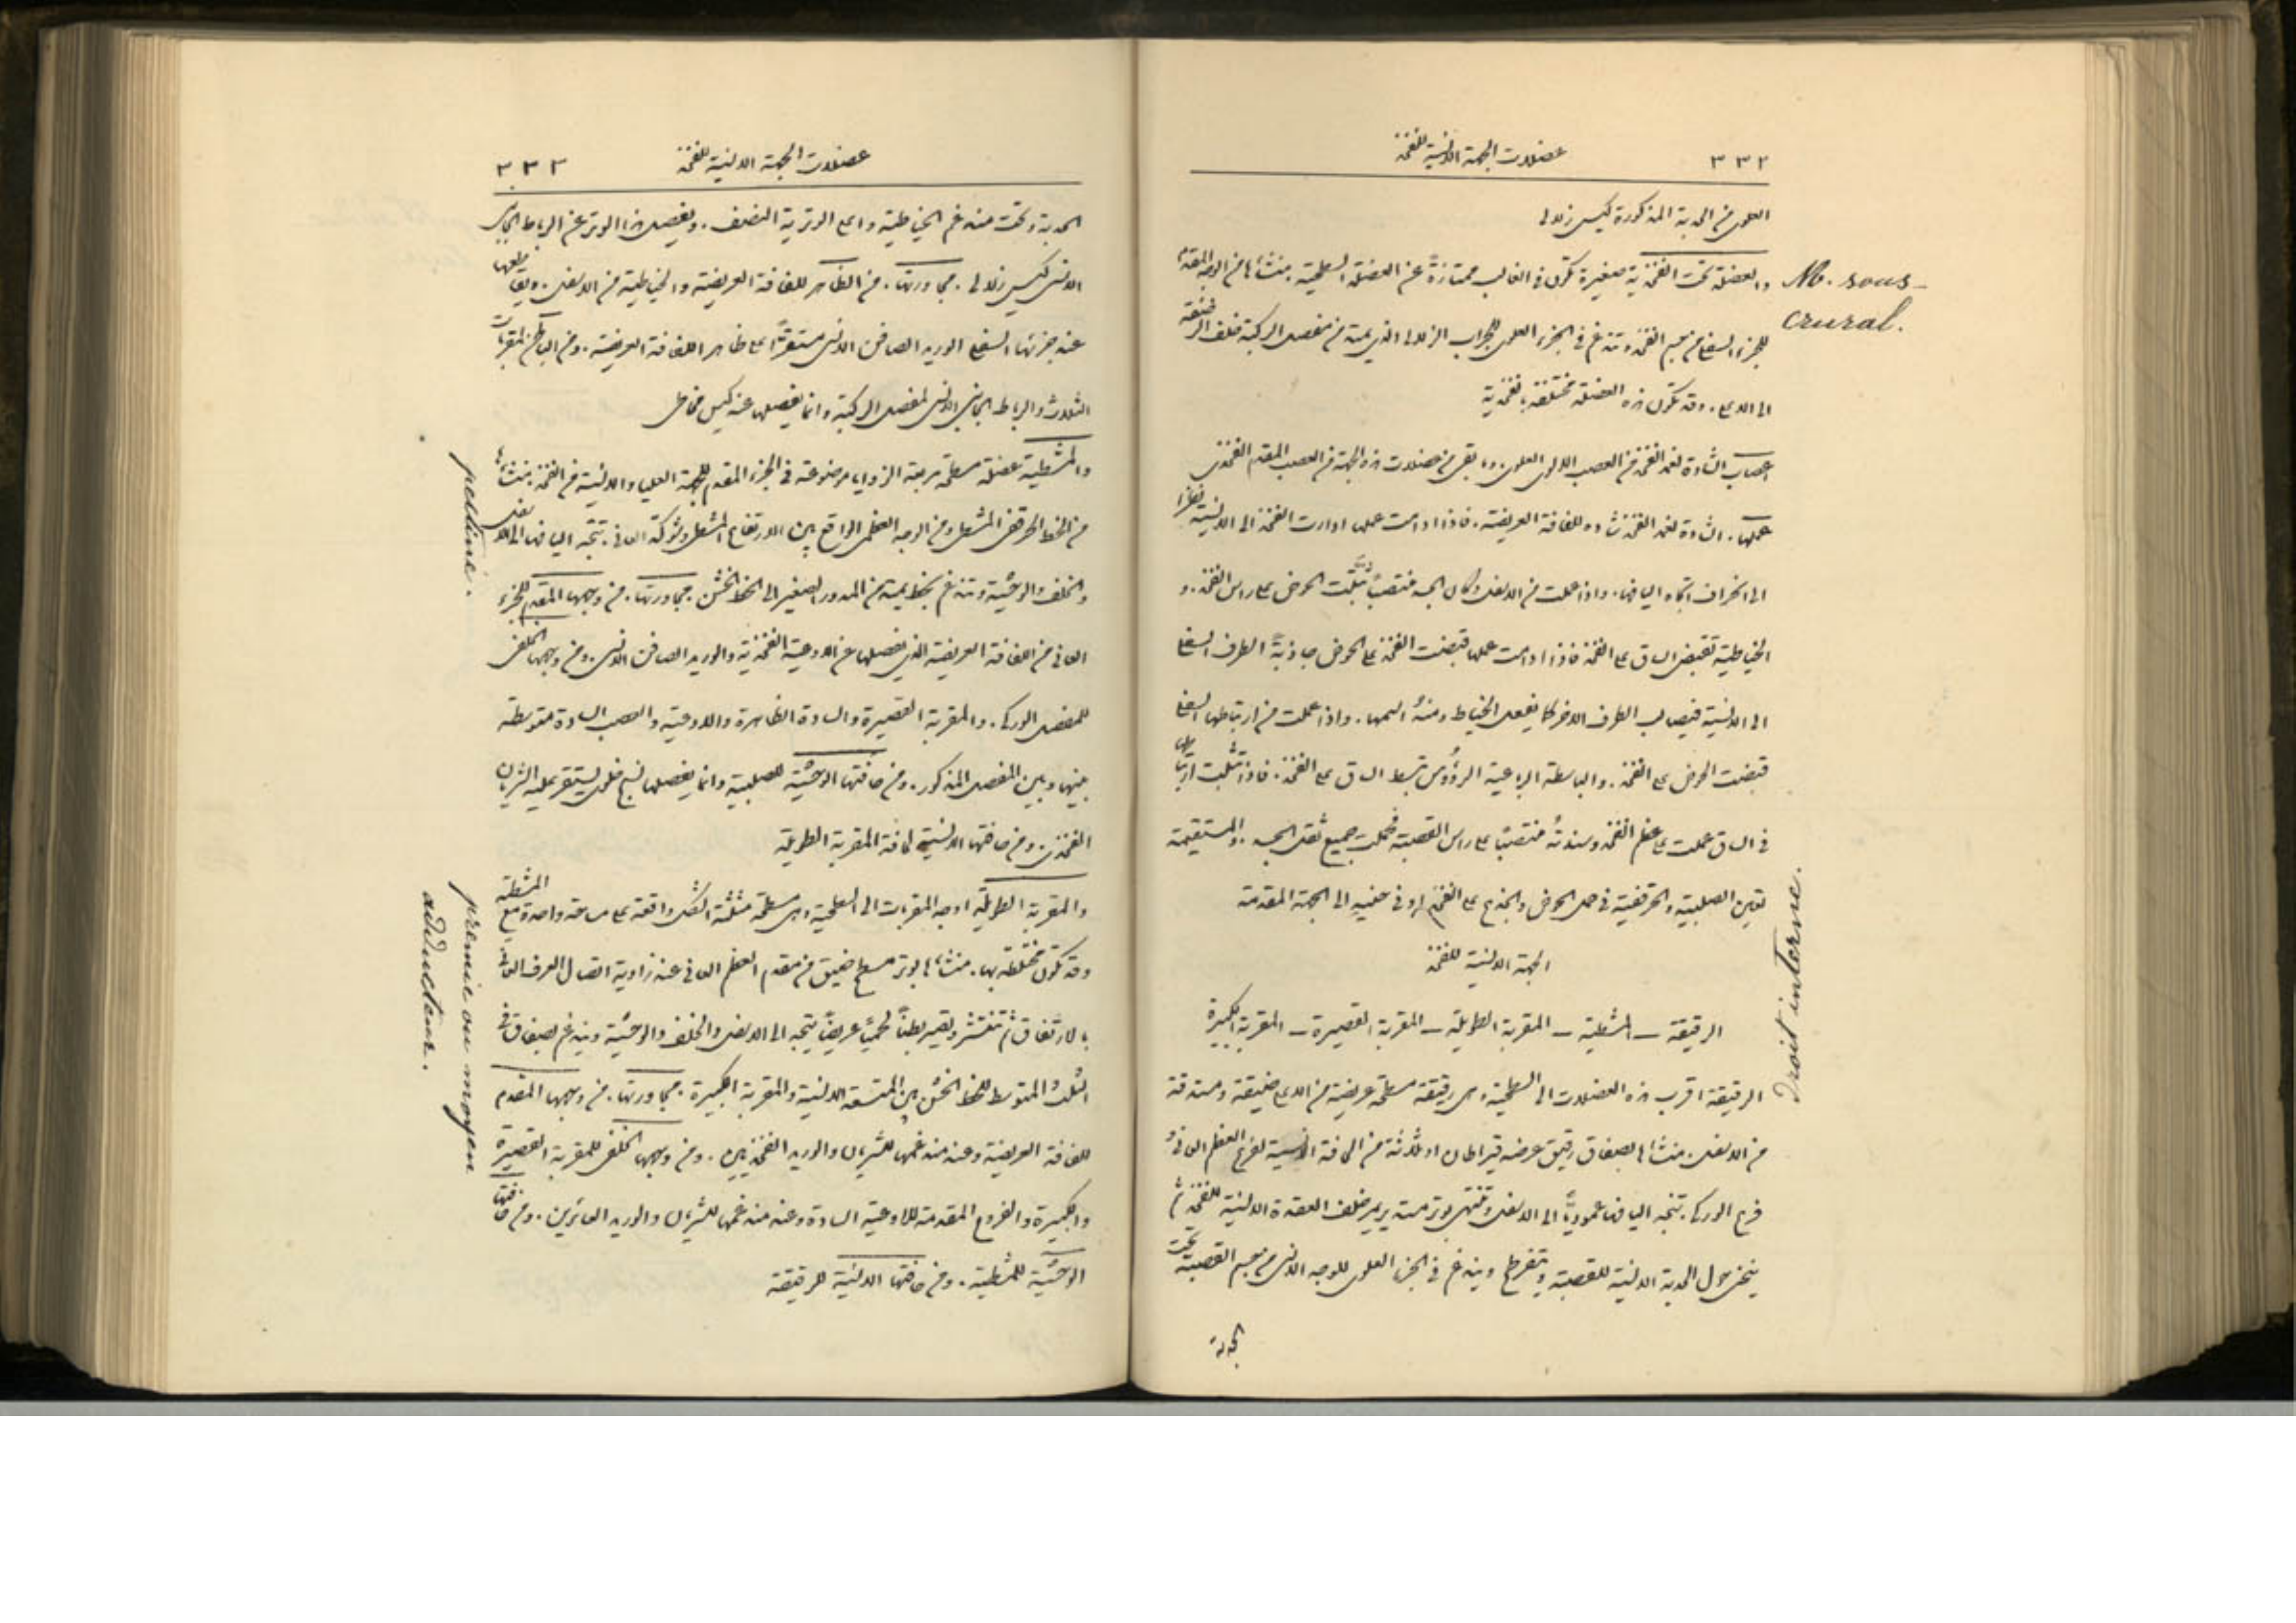 ٣٣٢ عضلات الجهة الانسية للفخذ
العلوي من الحدبة المذكورة كيس زلالي
والعضلة تحت الفخذية صغيرة تكون في الغالب ممتازة عن العضلة السطحية. منشاءها من الوجه المقدم
للجزء السفلي من جسم الفخذ وتندغم في الجزء العلوي للجراب الزلالي الذي يمتد من مفصل الركبة خلف الرضفة
الى الاعلى. وقد تكون هذه العضلة مختلطة بالفخذية
اعصاب الشادة لغمد الفخذ من العصب الالوي العلوي. وما بقي من عضلات هذه الجهة من العصب المقدم الفخذي
عملها. الشادة لغمد الفخذ شادة للفافة العريضة. فاذا ادامت عملها ادارت الفخذ الى الانسية نظرا
الى انحراف اتجاه اليافها. واذا عملت من الاسفل وكان الجسد منتصبا ثبتت الحوض على راس الفخذ. و
الخياطية تقبض الساق على الفخذ فاذا ادامت عملها قبضت الفخذ على الحوض جاذبة الطرف السفلي
الى الانسية فيصالب الطرف الاخر كما يفعل الخياط ومنه اسمها. واذا عملت من ارتباطها السفلي
قبضت الحوض على الفخذ. والباسطة الرباعية الرؤوس تبسط الساق على الفخذ. فاذا تثبت ارتباطها
في الساق عملت على عظم الفخذ وسندته منتصبا على راس القصبة فحملت جميع ثقل الجسد. والمستقيمة
تعين الصلبية والحرقفية في حمل الحوض والجذع على الفخذ او في حنيه الى الجهة المقدمة
الجهة الانسية للفخذ
الرقيقة ــ المشطية ــ المقربة الطويلة ــ المقربة القصيرة ــ المقربة الكبيرة
الرقيقة اقرب هذه العضلات الى السطحية وهي رقيقة مسطحة عريضة من الاعلى ضيقة ومستدقة
من الاسفل. منشاءها بصفاق رقيق عرضه قيراطان او ثلاثة من الحافة الانسية لفرع العظم العاني و
فرع الورك. تتجه اليافها عموديا الى الاسفل وتنتهي بوتر مستدير يمر خلف العقدة الانسية للفخذ ثم
ينحني حول الحدبة الانسية للقصبة ويتفرطح ويندغم في الجزء العلوي للوجه الانسي من جسم القصبة تحت
الحدبة
M. sous-
crural.
Droit interne.
عضلات الجهة الانسية للفخذ ٣٣٣
الحدبة وتحت مندغم الخياطية واعلى الوترية النصف. ويفصل هذا الوتر عن الرباط الجانبي
الانسي كيس زلالي. مجاورتها. من الظاهر للفافة العريضة والخياطية من الاسفل. ويقاطعها
عند جزئها السفلي الوريد الصافن الانسي مستقرا على ظاهر اللفافة العريضة. ومن الباطن للمقربات
الثلاث والرباط الجانبي الانسي لمفصل الركبة وانما يفصلها عنه كيس مخاطي
والمشطية عضلة مسطحة مربعة الزوايا موضوعة في الجزء المقدم للجهة العليا والانسية من الفخذ. منشاءها
من الخط الحرقفي المشطي ومن الوجه العظمي الواقع بين الارتفاع المشطي وشوكة العاني. تتجه اليافها الى الاسفل
والخلف والوحشية وتندغم بخط يمتد من المدور الصغير الى الخط الخشن. مجاورتها. من وجهها المقدم للجزء
العاني من اللفافة العريضة الذي يفصلها عن الاوعية الفخذية والوريد الصافن الانسي. ومن وجهها الخلفي
للمفصل الوركي. والمقربة القصيرة والسادة الظاهرة والاوعية والعصب السادة متوسطة
بينها وبين المفصل المذكور. ومن حافتها الوحشية للصلبية وانما يفصلها نسيج خلوي يستقر عليه الشريان
الفخذي. ومن حافتها الانسية لحافة المقربة الطويلة
والمقربة الطويلة اوجه المقربات الى السطحية وهي مسطحة مثلثة الشكل واقعة على مساحة واحدة مع المشطية
وقد تكون مختلطة بها. منشاءها بوتر مسطح ضيق من مقدم العظم العاني عند زاوية اتصال العرف العاني
بالارتفاق ثم تنتشر وتصير بطنا لحميا عريضا يتجه الى الاسفل والخلف والوحشية ويندغم بصفاق في
الثلث المتوسط للخط الخشن بين المتسعة الانسية والمقربة الكبيرة. مجاورتها. من وجهها المقدم
للفافة العريضة وعند مندغمها للشريان والوريد الفخذيين. ومن وجهها الخلفي للمقربة القصيرة
والكبيرة والفروع المقدمة للاوعية السادة وعند مندغمها للشريان والوريد الغائرين. ومن حافتها
الوحشية للمشطية. ومن حافتها الانسية للرقيقة
pectiné.
premier ou moyen
adducteur.